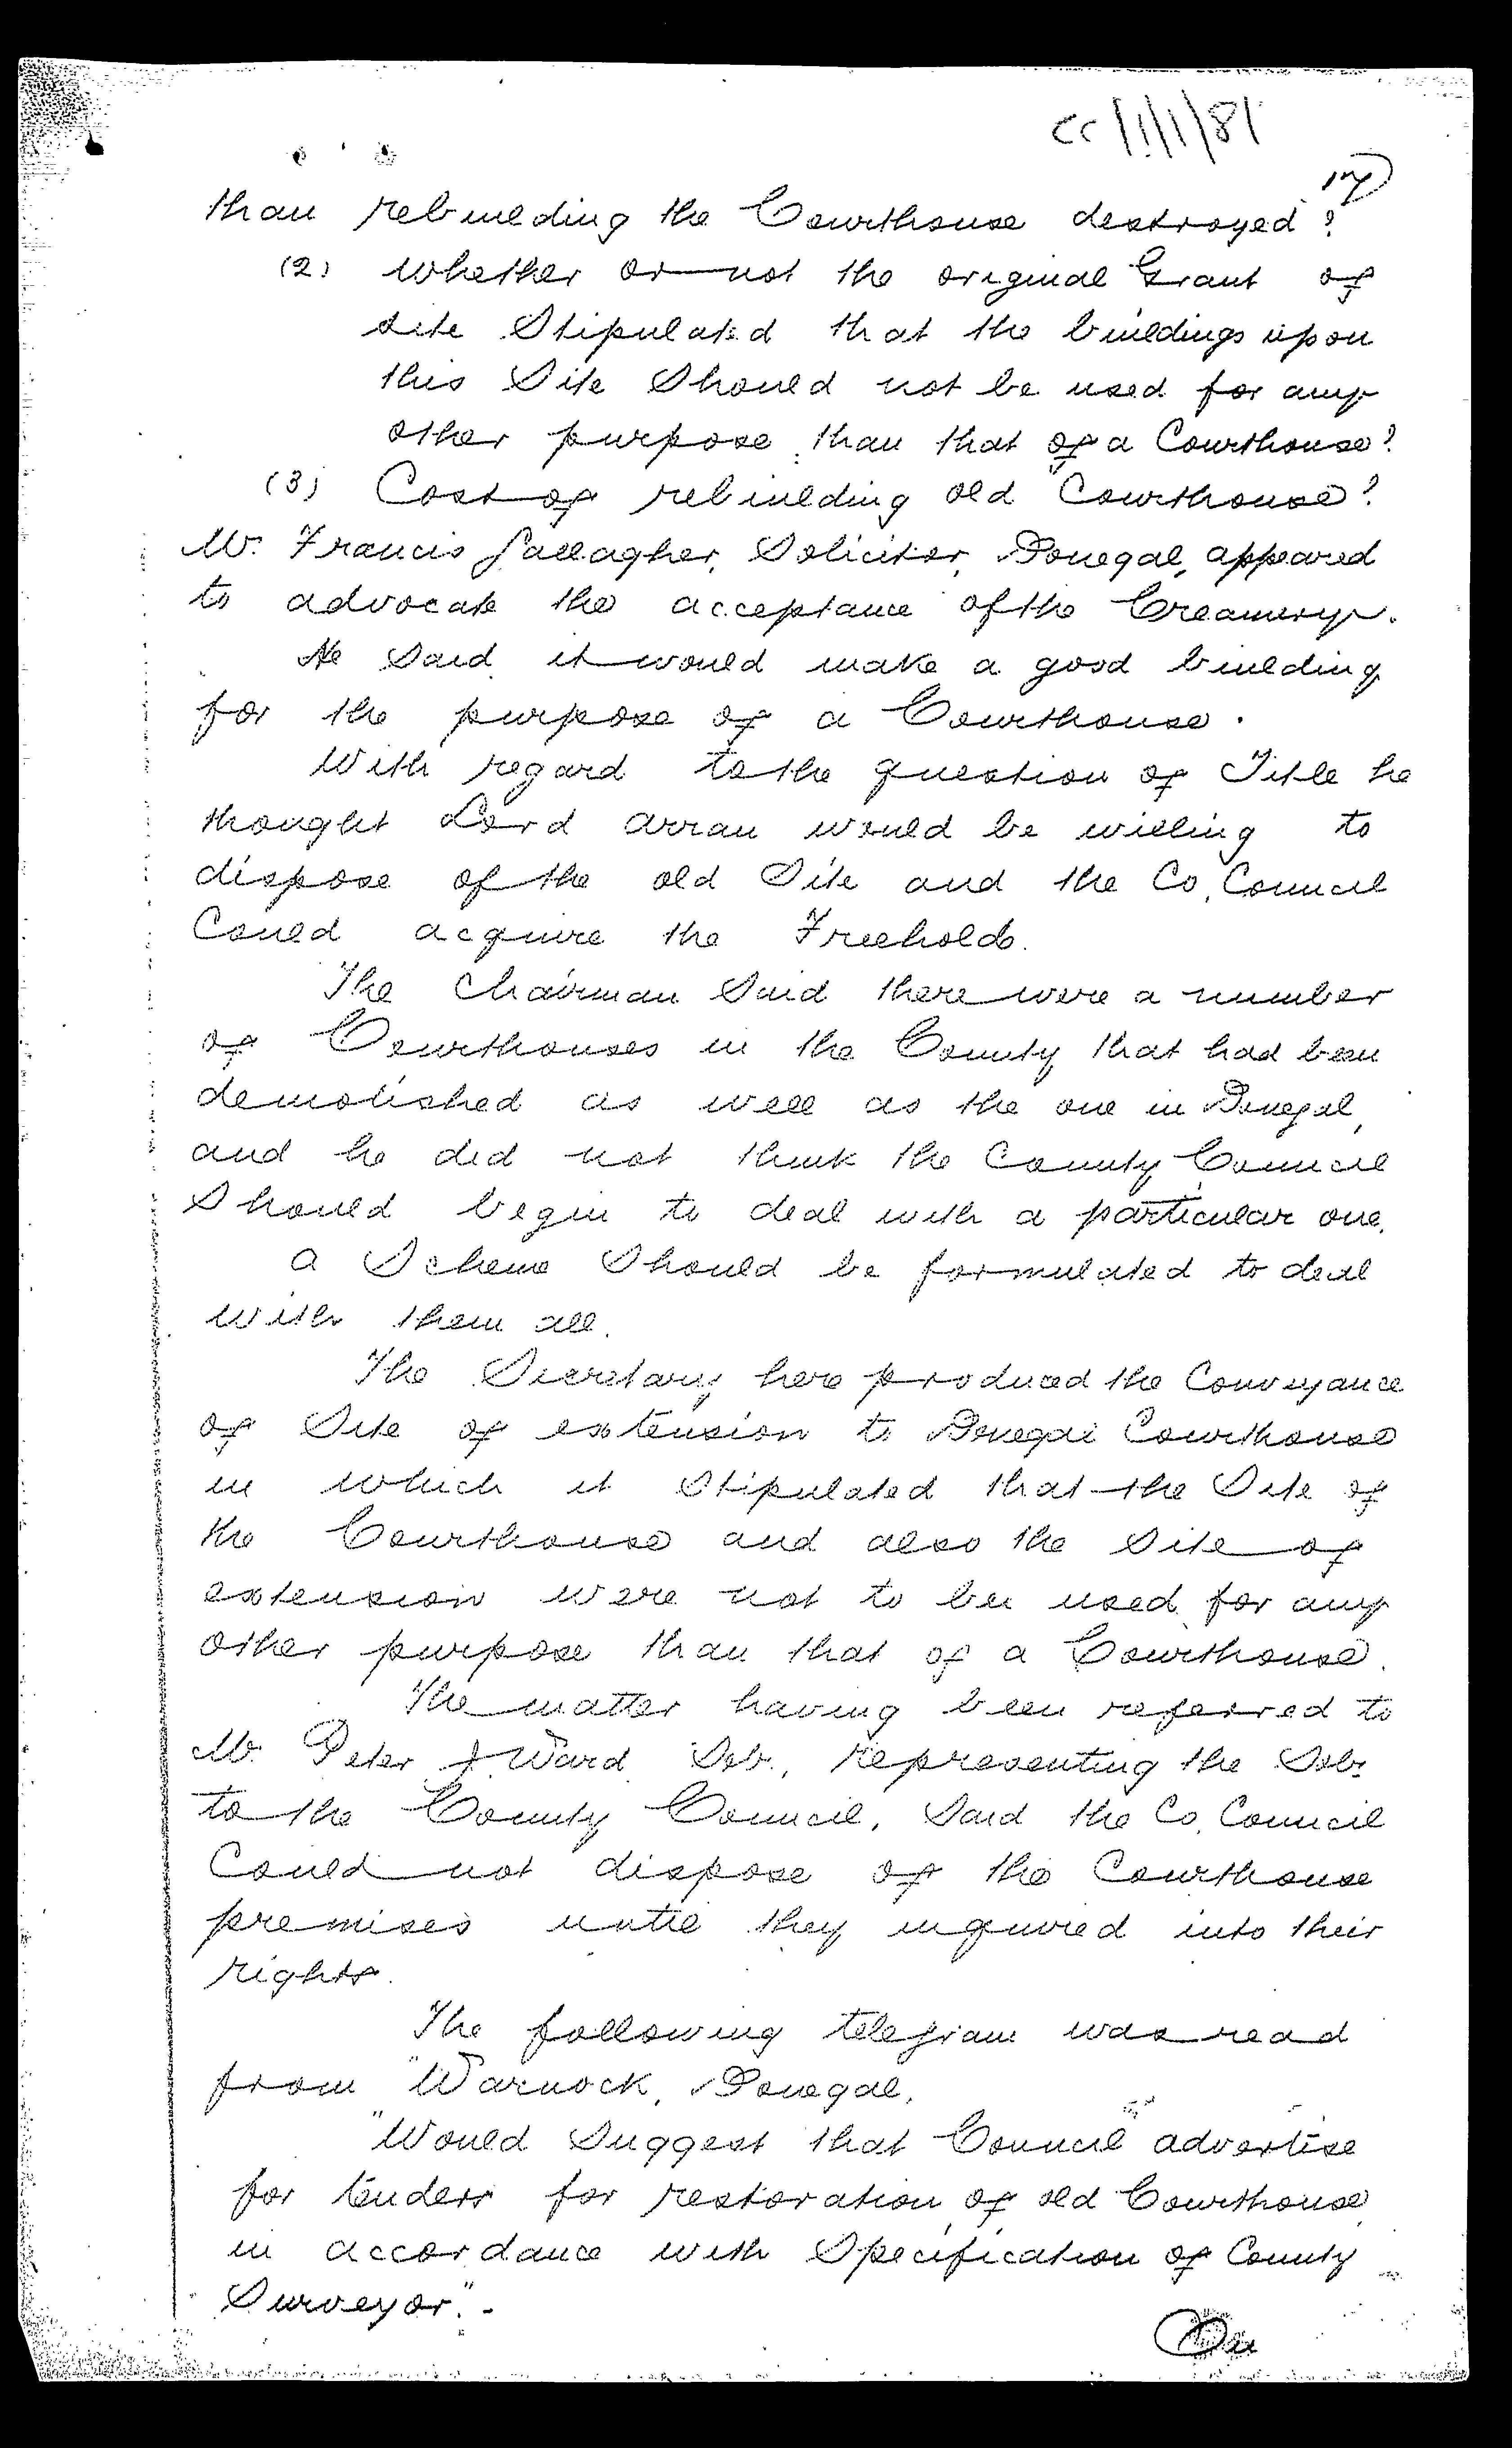 CC/1/1/81
17
than rebuilding the Courthouse destroyed?
(2) Whether or not the original Grant of
site Stipulated that the buildings upon
this Site Should not be used for any
other purpose than that of a Courthouse?
(3) Cost of rebuilding old Courthouse?
Mr. Francis Gallagher, Solicitor, Donegal, appeared
to advocate the acceptance of the Creamery.
He Said it would make a good building
for the purpose of a Courthouse.
With regard to the question of Title he
thought Lord Arran would be willing to
dispose of the old Site and the Co. Council
Could acquire the Freehold.
The Chairman Said there were a number
of Courthouses in the County that had been
demolished as well as the one in Donegal,
and he did not think the County Council
Should begin to deal with a particular one.
A Scheme Should be formulated to deal
with them all.
The Secretary here produced the Conveyance
of Site of extension to Donegal Courthouse
in which it Stipulated that the Site of
the Courthouse and also the Site of
extension were not to be used for any
other purpose than that of a Courthouse.
The matter having been referred to
Mr. Peter J Ward Solr., representing the Solr.
to the County Council, Said the Co. Council
Could not dispose of the Courthouse
premises until they inquired into their
rights.
The following telegram was read
from "Warnock, Donegal.
"Would Suggest that Council advertise
for tenders for restoration of old Courthouse
in accordance with Specification of County
Surveyor". -
On